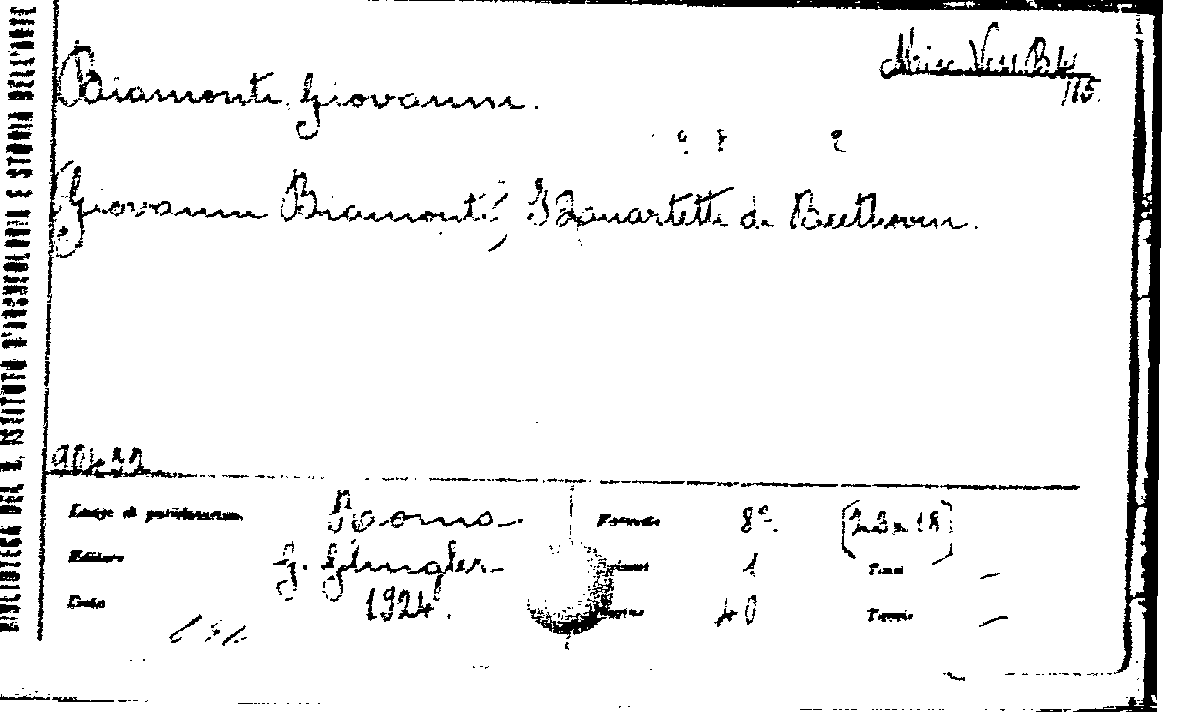 BIBLIOTECA DEL R. ISTITUTO D'ARCHEOLOGIA E STORIA DELL'ARTE
Misc. Vess.
115.
Biamonti Giovanni.
Giovanni Biamonti; I quartetti di Beethoven.
Luogo di pubblicazione Roma. Formato 8º.
Editore G. Glingler. Volumi 1 Tomi –
Data 1924. Pagine 40 Tavole –